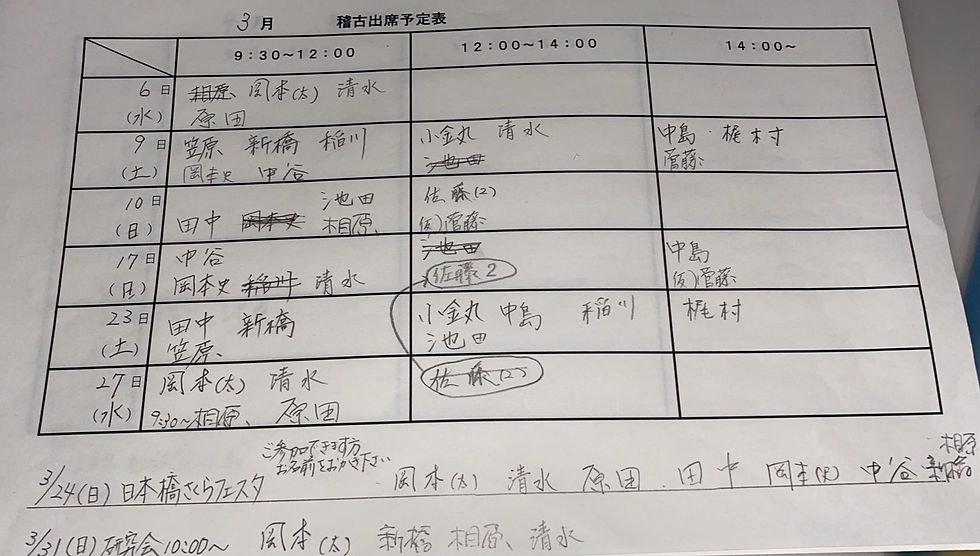 3月 稽古出席予定表
9:30~12:00 12:00~14:00 14:00~
6日(水)
相原 岡本(太) 清水
原田
9日(土)
笠原 新橋 稲川
岡本史 中谷
小金丸 清水
池田
中島 . 梶村
菅藤
10日(日)
池田
田中 岡本史 相原、
佐藤(2)
(仮)菅藤
17日(日)
中谷
岡本史 稲川 清水
池田
佐藤2
中島
(仮)菅藤
23日(土)
田中 新橋
笠原、
小金丸 中島 稲川
池田
梶村
27日(水)
岡本(太) 清水
9:30~相原、原田
佐藤(2)
ご参加できます方
お名前をおかき下さい
3/24(日)日本橋さくらフェスタ 岡本(太) 清水 原田 . 田中 岡本(史) 中谷 新橋 相原
3/31(日)研究会10:00~ 岡本(太) 新橋 相原、清水